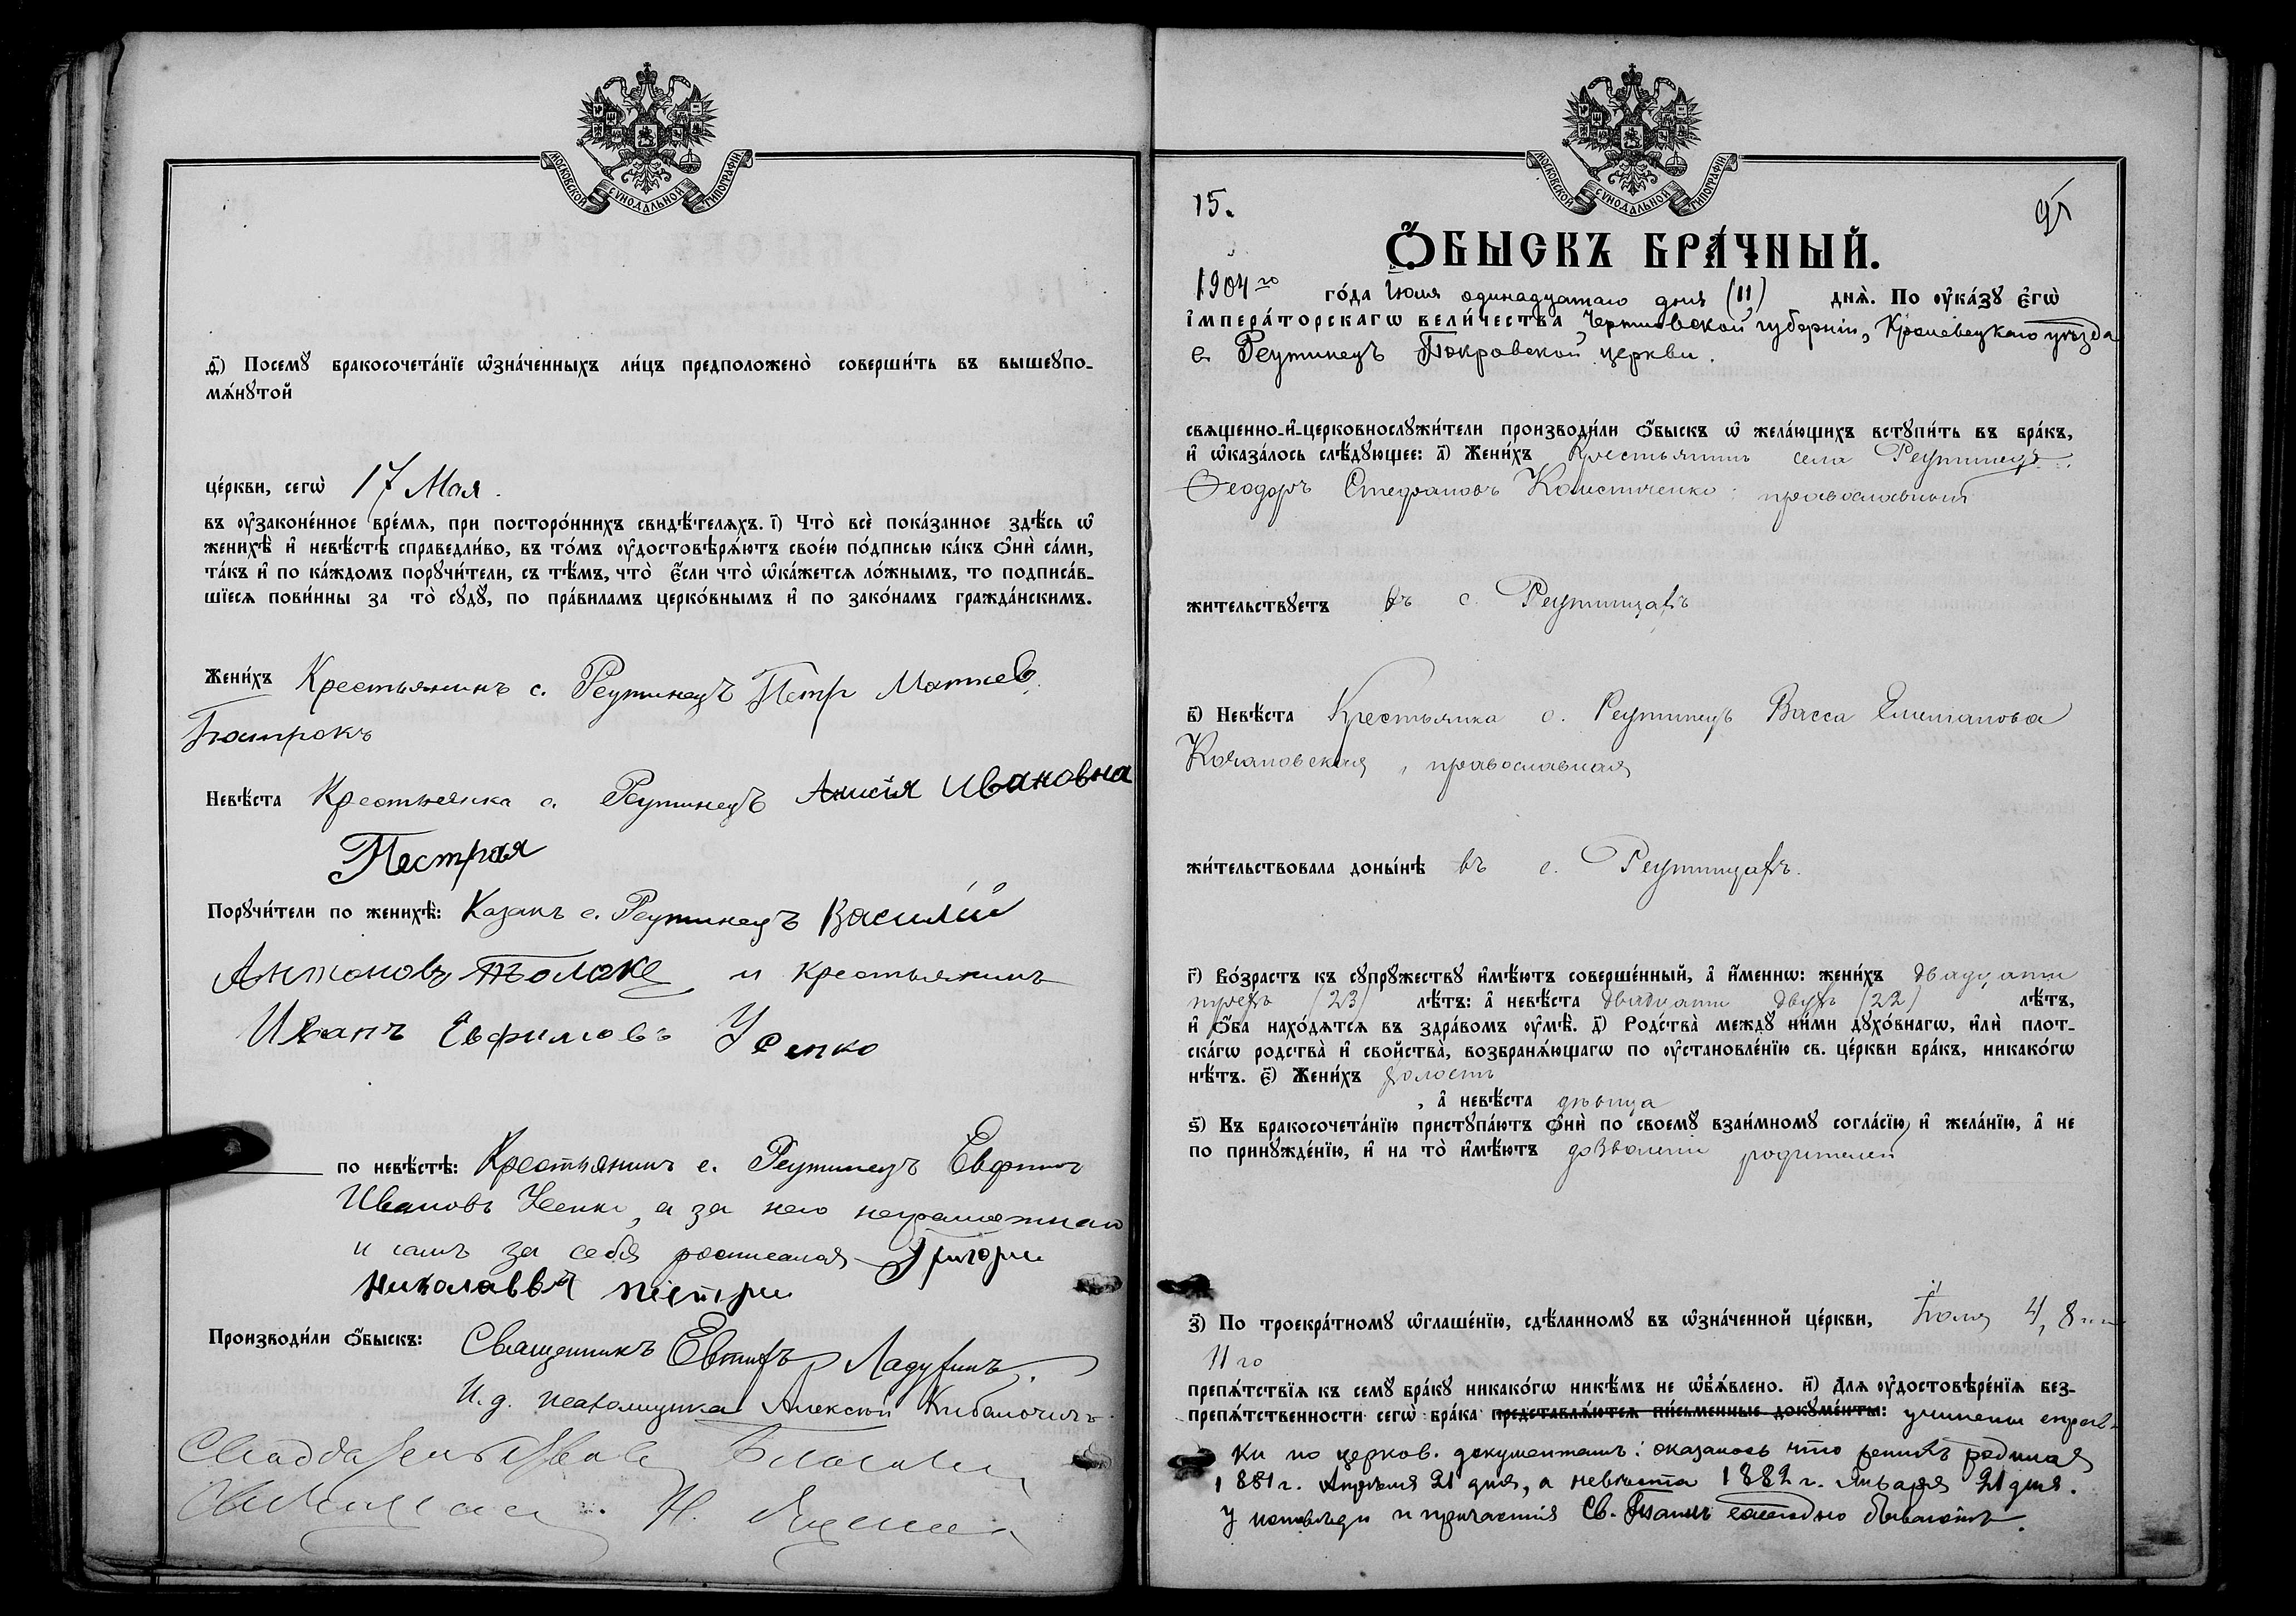 МОСКОВСКОЙ СѴНОДАЛЬНОЙ ТИПОГРАФІИ
д҃) Посемꙋ бракосочета́нїе ѡ҆зна́ченныхъ ли́цъ предположено̀ соверши́ть въ вышеꙋпо-
мѧ́нꙋтой
це́ркви, сегѡ̀ 17 Мая.
въ ᲂу҆законе́нное вре́мѧ, при посторо́ннихъ свидѣ́телѧхъ. і҃) Что̀ всѐ пока́занное здѣ́сь ѡ҆
женихѣ̀ и҆ невѣ́стѣ справедли́во, въ то́мъ ᲂу҆достовѣрѧ́ютъ свое́ю по́дписью ка́къ ѻ҆нѝ са́ми,
та́къ и҆ по ка́ждомъ порꙋчи́тели, съ тѣ́мъ, что̀ є҆́сли что̀ ѡ҆ка́жетсѧ ло́жнымъ, то подписа́в-
шїесѧ пови́нны за то̀ сꙋдꙋ̀, по пра́виламъ церко́внымъ и҆ по зако́намъ гражда́нскимъ.
Жени́хъ Крестьянинъ с. Реутинецъ Петр Матвеев
Невѣ́ста Крестьянка с. Реутинецъ Анисія Ивановна
Пестрая
Порꙋчи́тели по женихѣ̀: Казакъ с. Реутинецъ Василій
Антоновъ и крестьянинъ
Иванъ Евфимовъ Усенко
по невѣ́стѣ: Крестьянинъ с. Реутинецъ Евфим
Ивановъ Усенко, а за него неграмотнаго
и самъ за себя росписался Григорий
Производи́ли ѻ҆́быскъ: Священникъ
И. д. псаломщика Алексѣй
МОСКОВСКОЙ СѴНОДАЛЬНОЙ ТИПОГРАФІИ
15.
95
Ѻ҆́БЫСКЪ БРА́ЧНЫЙ.
1904 го го́да Іюля одинадцатаго дня (11) днѧ̀. По ᲂу҆ка́зꙋ є҆гѡ̀
і҆мпера́торскагѡ вели́чества Черниговской губерніи, Кролевецкаго уѣзда
с. Реутинецъ Покровской церкви.
свѧщенно-и҆-церковнослꙋжи́тели производи́ли ѻ҆́быскъ ѡ҆ жела́ющихъ встꙋпи́ть въ бра́къ,
и҆ ѡ҆каза́лось слѣ́дꙋющее: а҃) Жени́хъ Крестьянинъ села Реутинецъ
Ѳеодоръ Стефановъ православный
жи́тельствꙋетъ въ с. Реутинцахъ
в҃) Невѣ́ста Крестьянка с. Реутинецъ Васса
православная
жи́тельствовала доны́нѣ въ с. Реутинцахъ.
г҃) Во́зрастъ къ сꙋпрꙋ́жествꙋ и҆мѣ́ютъ соверше́нный, а҆ и҆́меннѡ: жени́хъ двадцати
трехъ (23) лѣ́тъ: а҆ невѣ́ста двадцати двухъ (22) лѣ́тъ,
и҆ ѻ҆́ба нахо́дѧтсѧ въ здра́вомъ ᲂу҆мѣ̀. д҃) Ро́дства̀ междꙋ̀ ни́ми дꙋхо́внагѡ, и҆лѝ плот-
ска́гѡ родства̀ и҆ сво́йства̀, возбранѧ́ющагѡ по ᲂу҆становле́нїю св. це́ркви бра́къ, никако́гѡ
нѣ́тъ. є҃) Жени́хъ холостъ
, а҆ невѣ́ста дѣвица
ѕ҃) Къ бракосочета́нїю пристꙋпа́ютъ ѻ҆нѝ по своемꙋ̀ взаи́мномꙋ согла́сїю, и҆ жела́нїю, а҆ не
по принꙋжде́нїю, и҆ на то̀ и҆мѣ́ютъ дозволеніе родителей
з҃) По троекра́тномꙋ ѡ҆глаше́нїю, сдѣ́ланномꙋ въ ѡ҆зна́ченной це́ркви, Іюля 4, 8 и
11 го
препѧ́тствїѧ къ семꙋ̀ бра́кꙋ никако́гѡ никѣ́мъ не ѡ҆б̾ѧ́влено. и҃) Длѧ ᲂу҆достовѣре́нїѧ без-
препѧ́тственности сегѡ̀ бра́ка представлѧ́ютсѧ пи́сьменные докꙋме́нты: учинены справ-
ки по церков. документамъ: оказалось что женихъ родился
1881 г. Апрѣля 21 дня, а невѣста 1882 г. Января 21 дня.
У исповѣди и причастія Св. Таинъ ежегодно бываютъ.